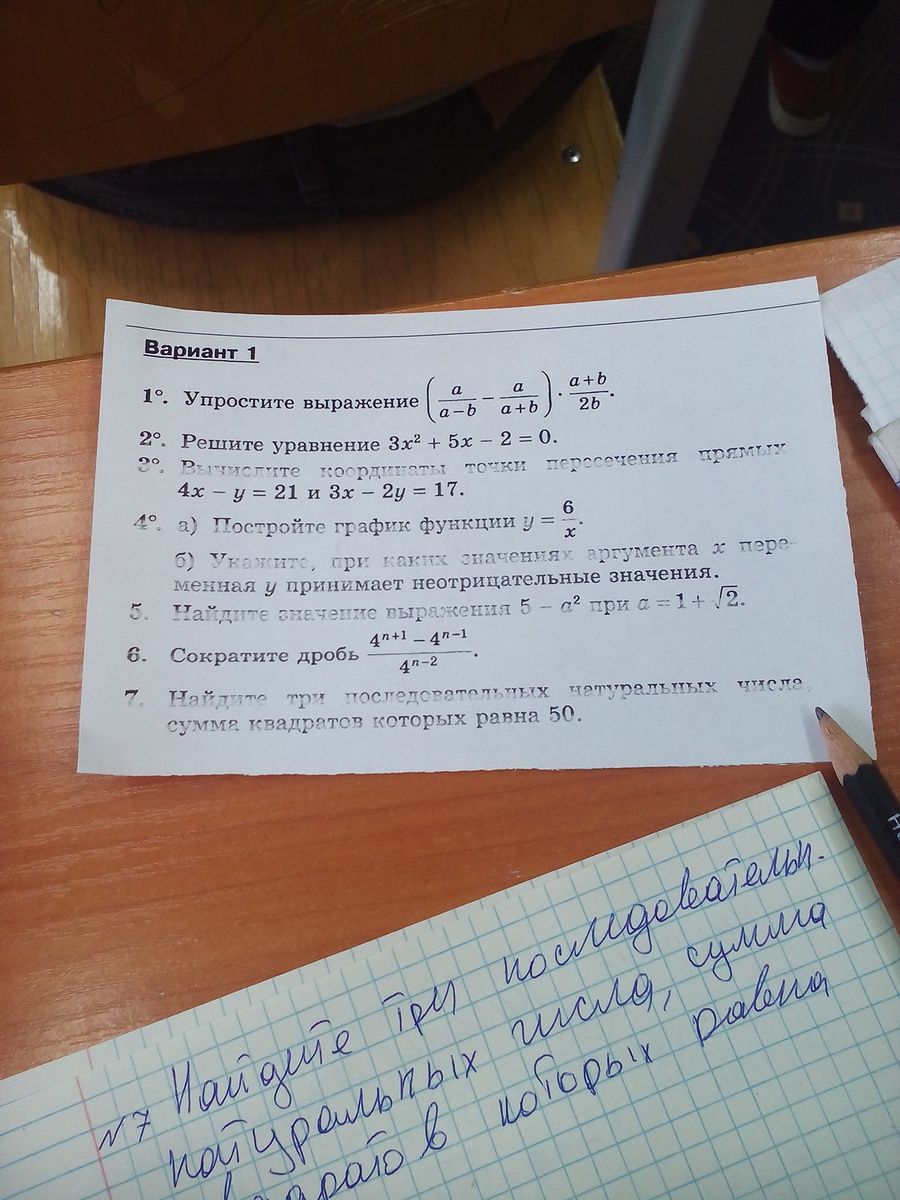 Вариант 1
1°. Упростите выражение (a/(a−b) − a/(a+b)) · (a+b)/2b.
2°. Решите уравнение 3x² + 5x − 2 = 0.
3°. Вычислите координаты точки пересечения прямых
4x − y = 21 и 3x − 2y = 17.
4°. а) Постройте график функции y = 6/x.
б) Укажите, при каких значениях аргумента x пере-
менная y принимает неотрицательные значения.
5. Найдите значение выражения 5 − a² при a = 1 + √2.
6. Сократите дробь (4ⁿ⁺¹ − 4ⁿ⁻¹)/4ⁿ⁻².
7. Найдите три последовательных натуральных числа,
сумма квадратов которых равна 50.
N7 Найдите три последовательн.
натуральных числа, сумма
которых равна